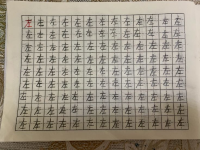 左左左左左左左左左左左左
左左左左左左左左左左左左
左左左左左左左左左左左左
左左左左左左左左左左左左
左左左左左左左左左左左左
左左左左左左左左左左左左
左左左左左左左左左左左左
左左左左左左左左左左左左
左左左左左左左左左左左左